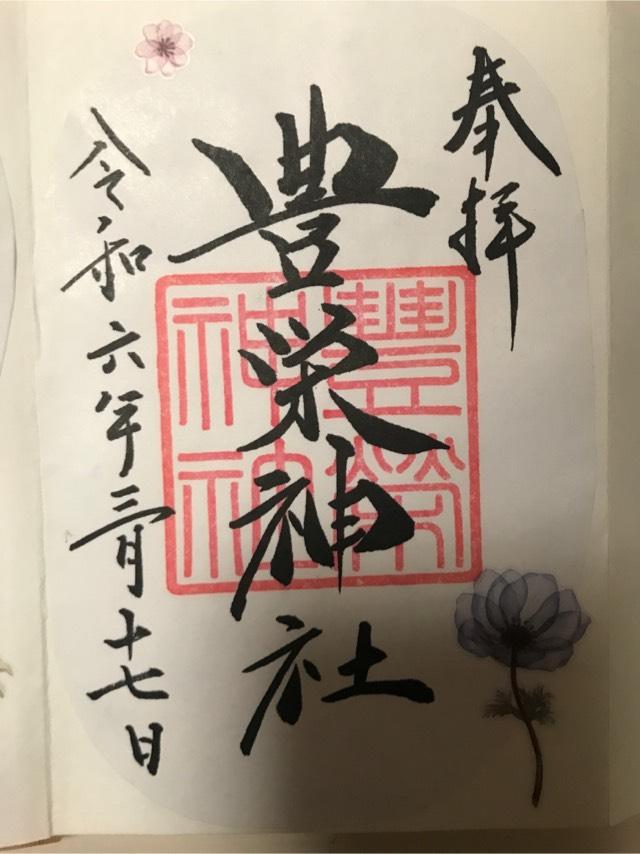 奉拝
豊栄神社
豊榮神社
令和六年三月十七日